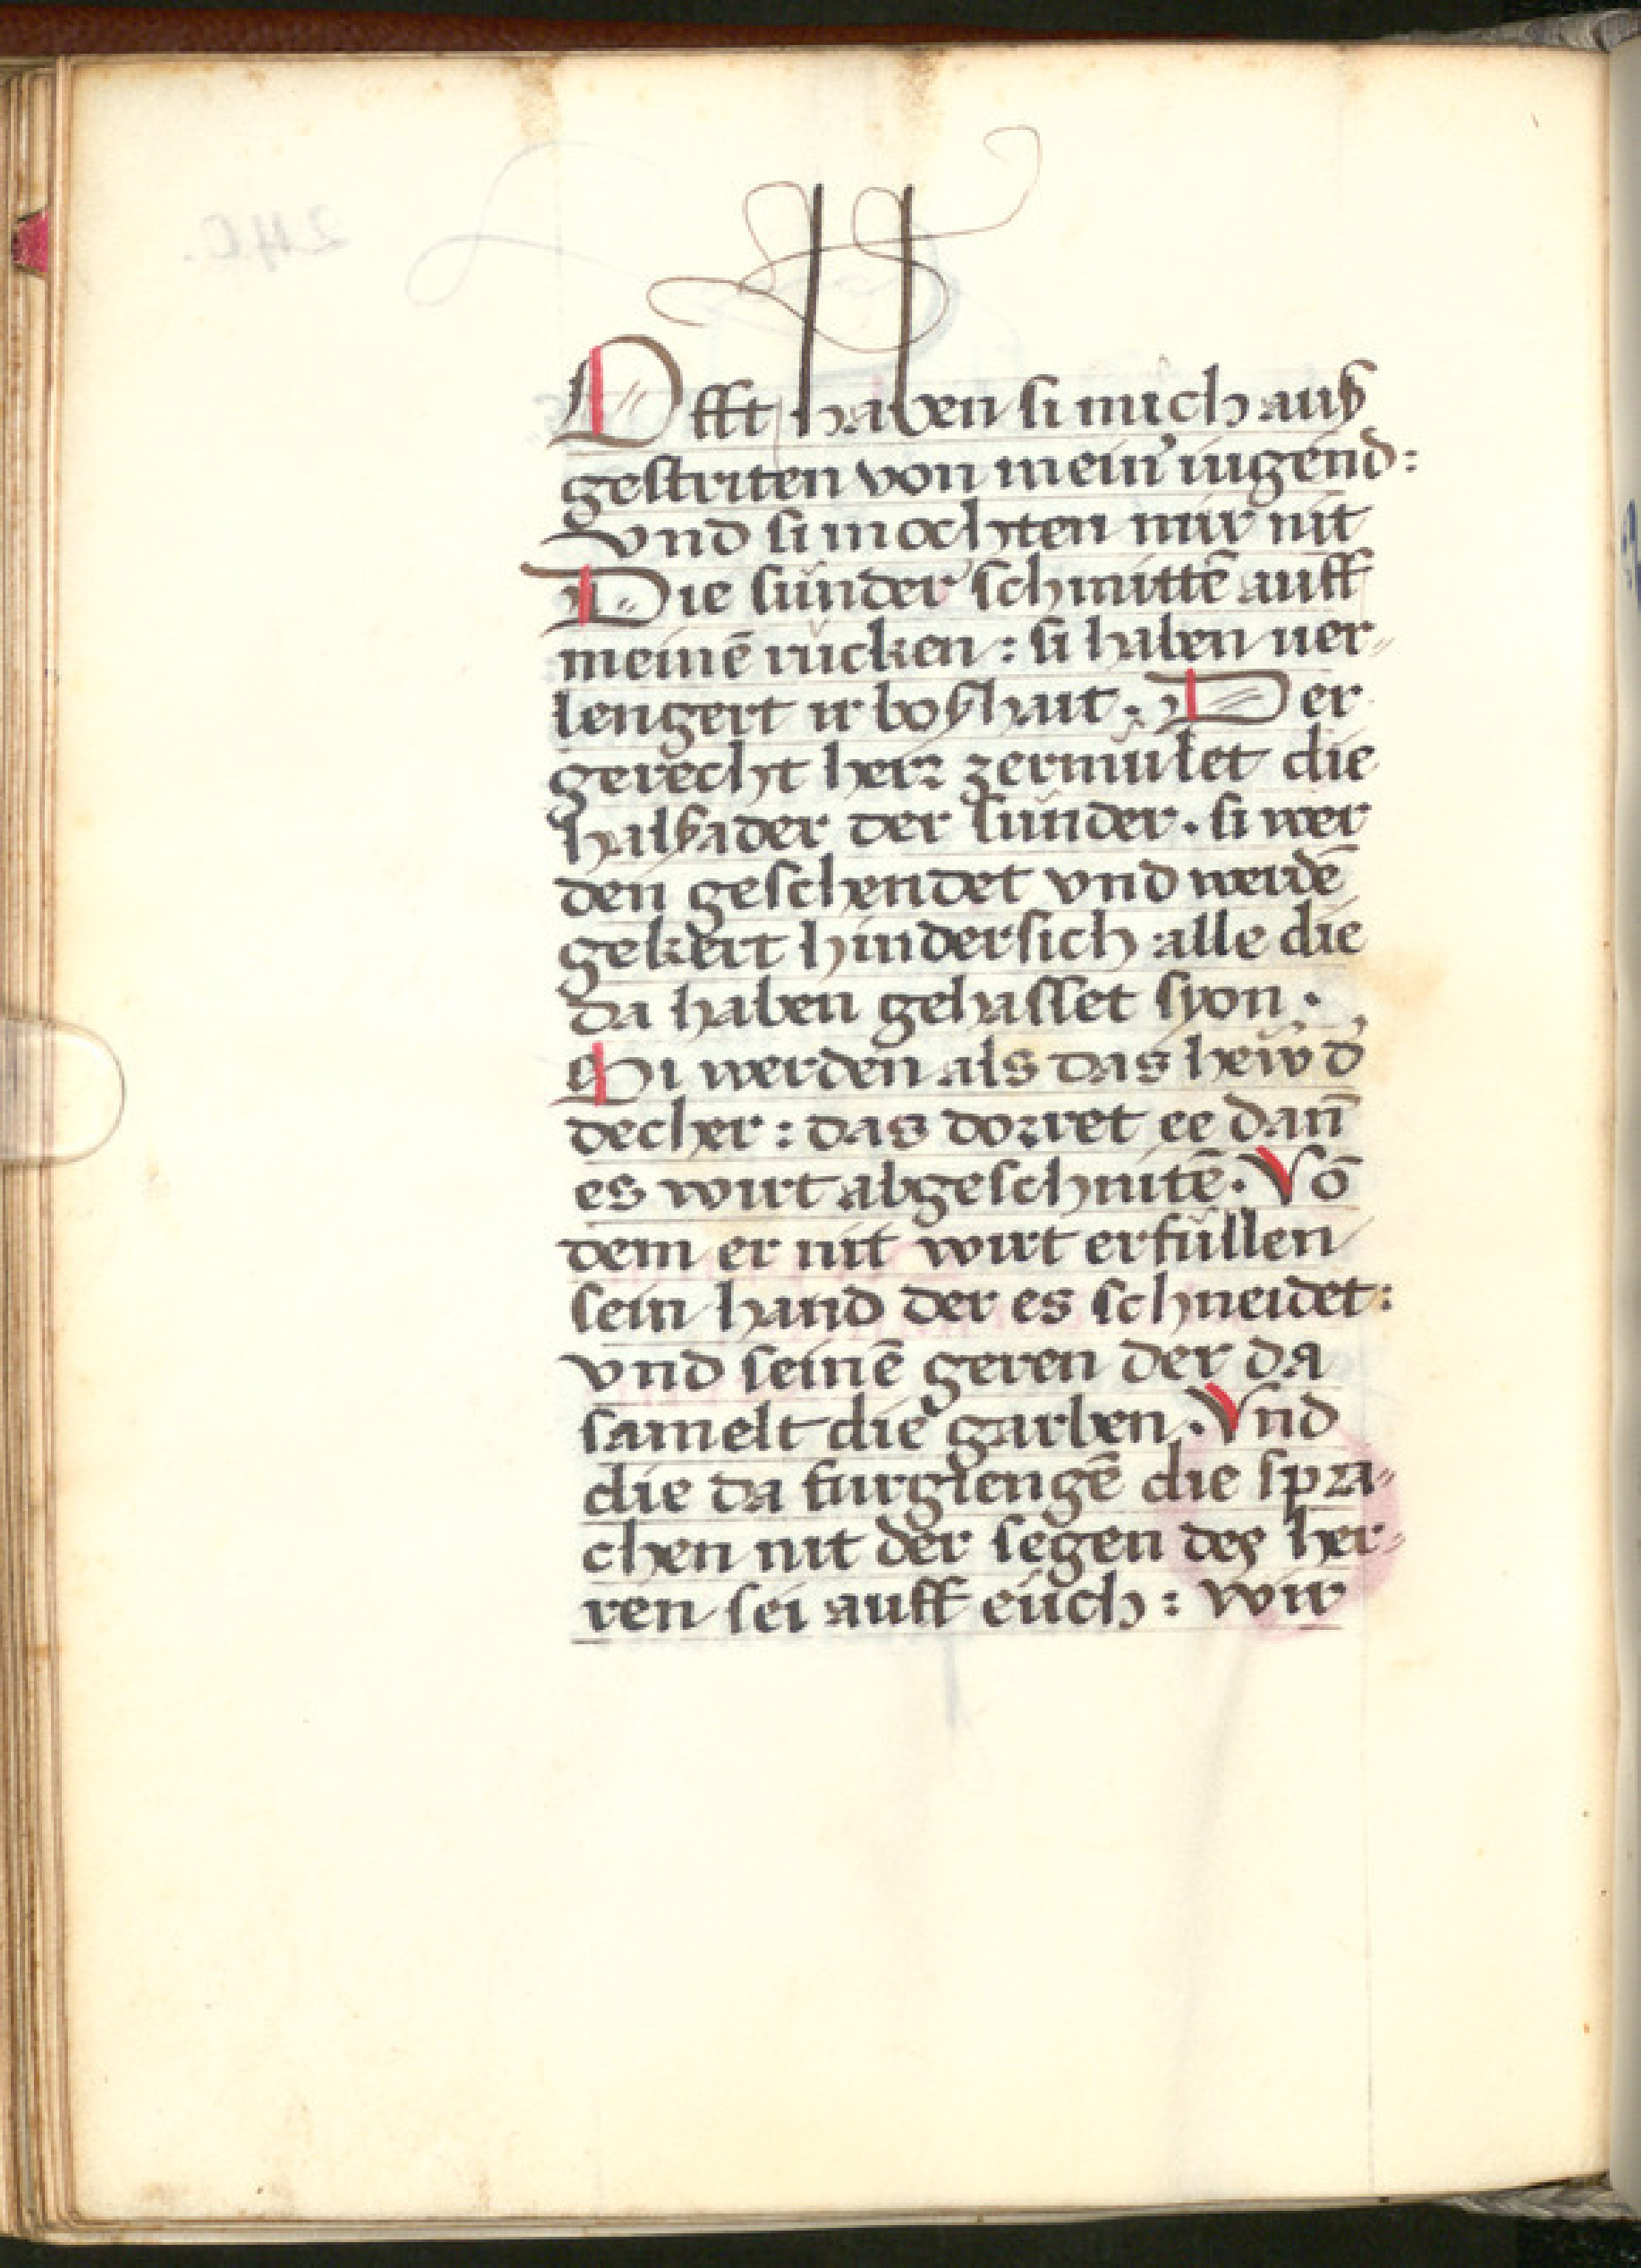 Offt haben si mich auß
gestriten von mein᾽ iugend:
vnd si mochten mir nit
Die sünder schmittē auff
meinē rücken: si haben uer„
lengert ir boßhait. Der
gerecht herr zermület die
halßader der sünder. si wer
den geschendet vnd werdē
gekert hindersich alle die
da haben gehasset syon.
Si werden als das heẅ d᾽
decher: das dorret ee dañ
es wirt abgeschnitē. Vō
dem er nit wirt erfüllen
sein hand der es schneidet:
vnd seinē geren der da
samelt die garben. Vnd
die da fürgiengē die spra„
chen nit der segen des her„
ren sei auff eüch: wir